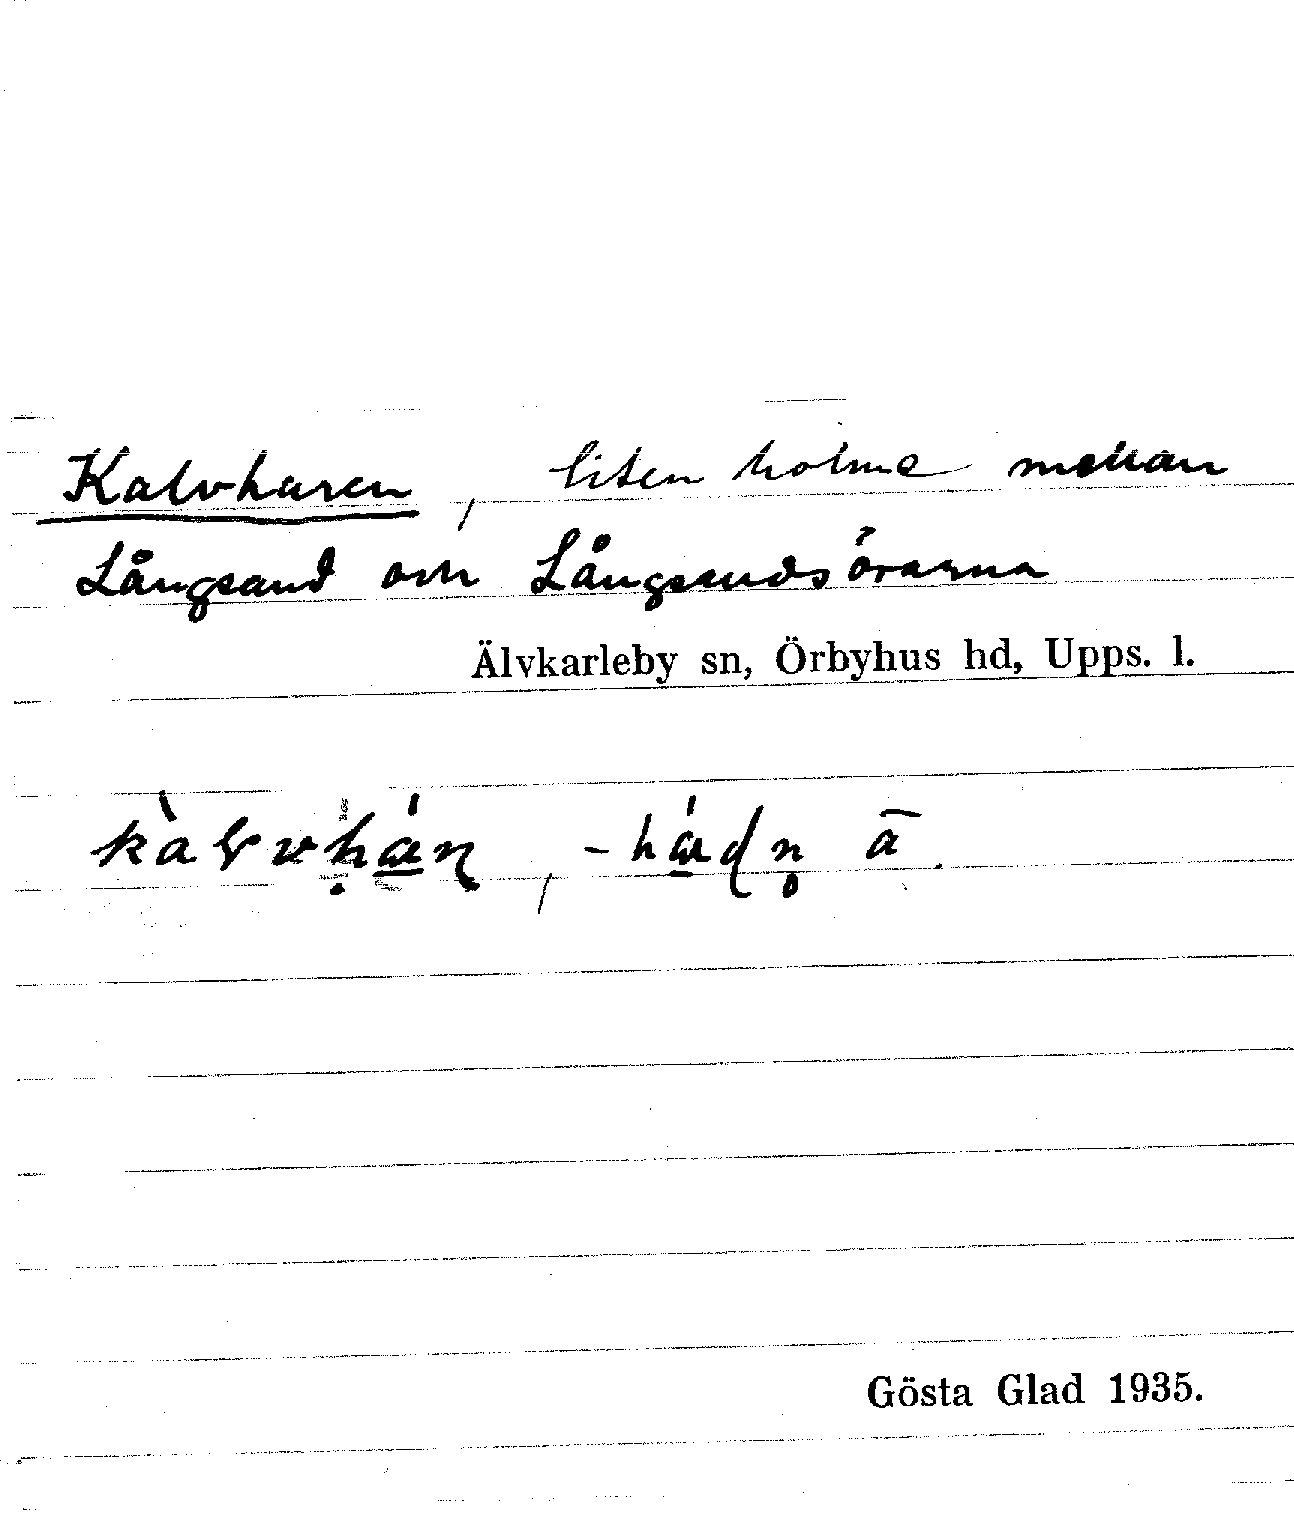 Kalvharen, liten holme mellan
Långsand och Långsandsörarna
Älvkarleby sn, Örbyhus hd, Upps. l.
Gösta Glad 1935.